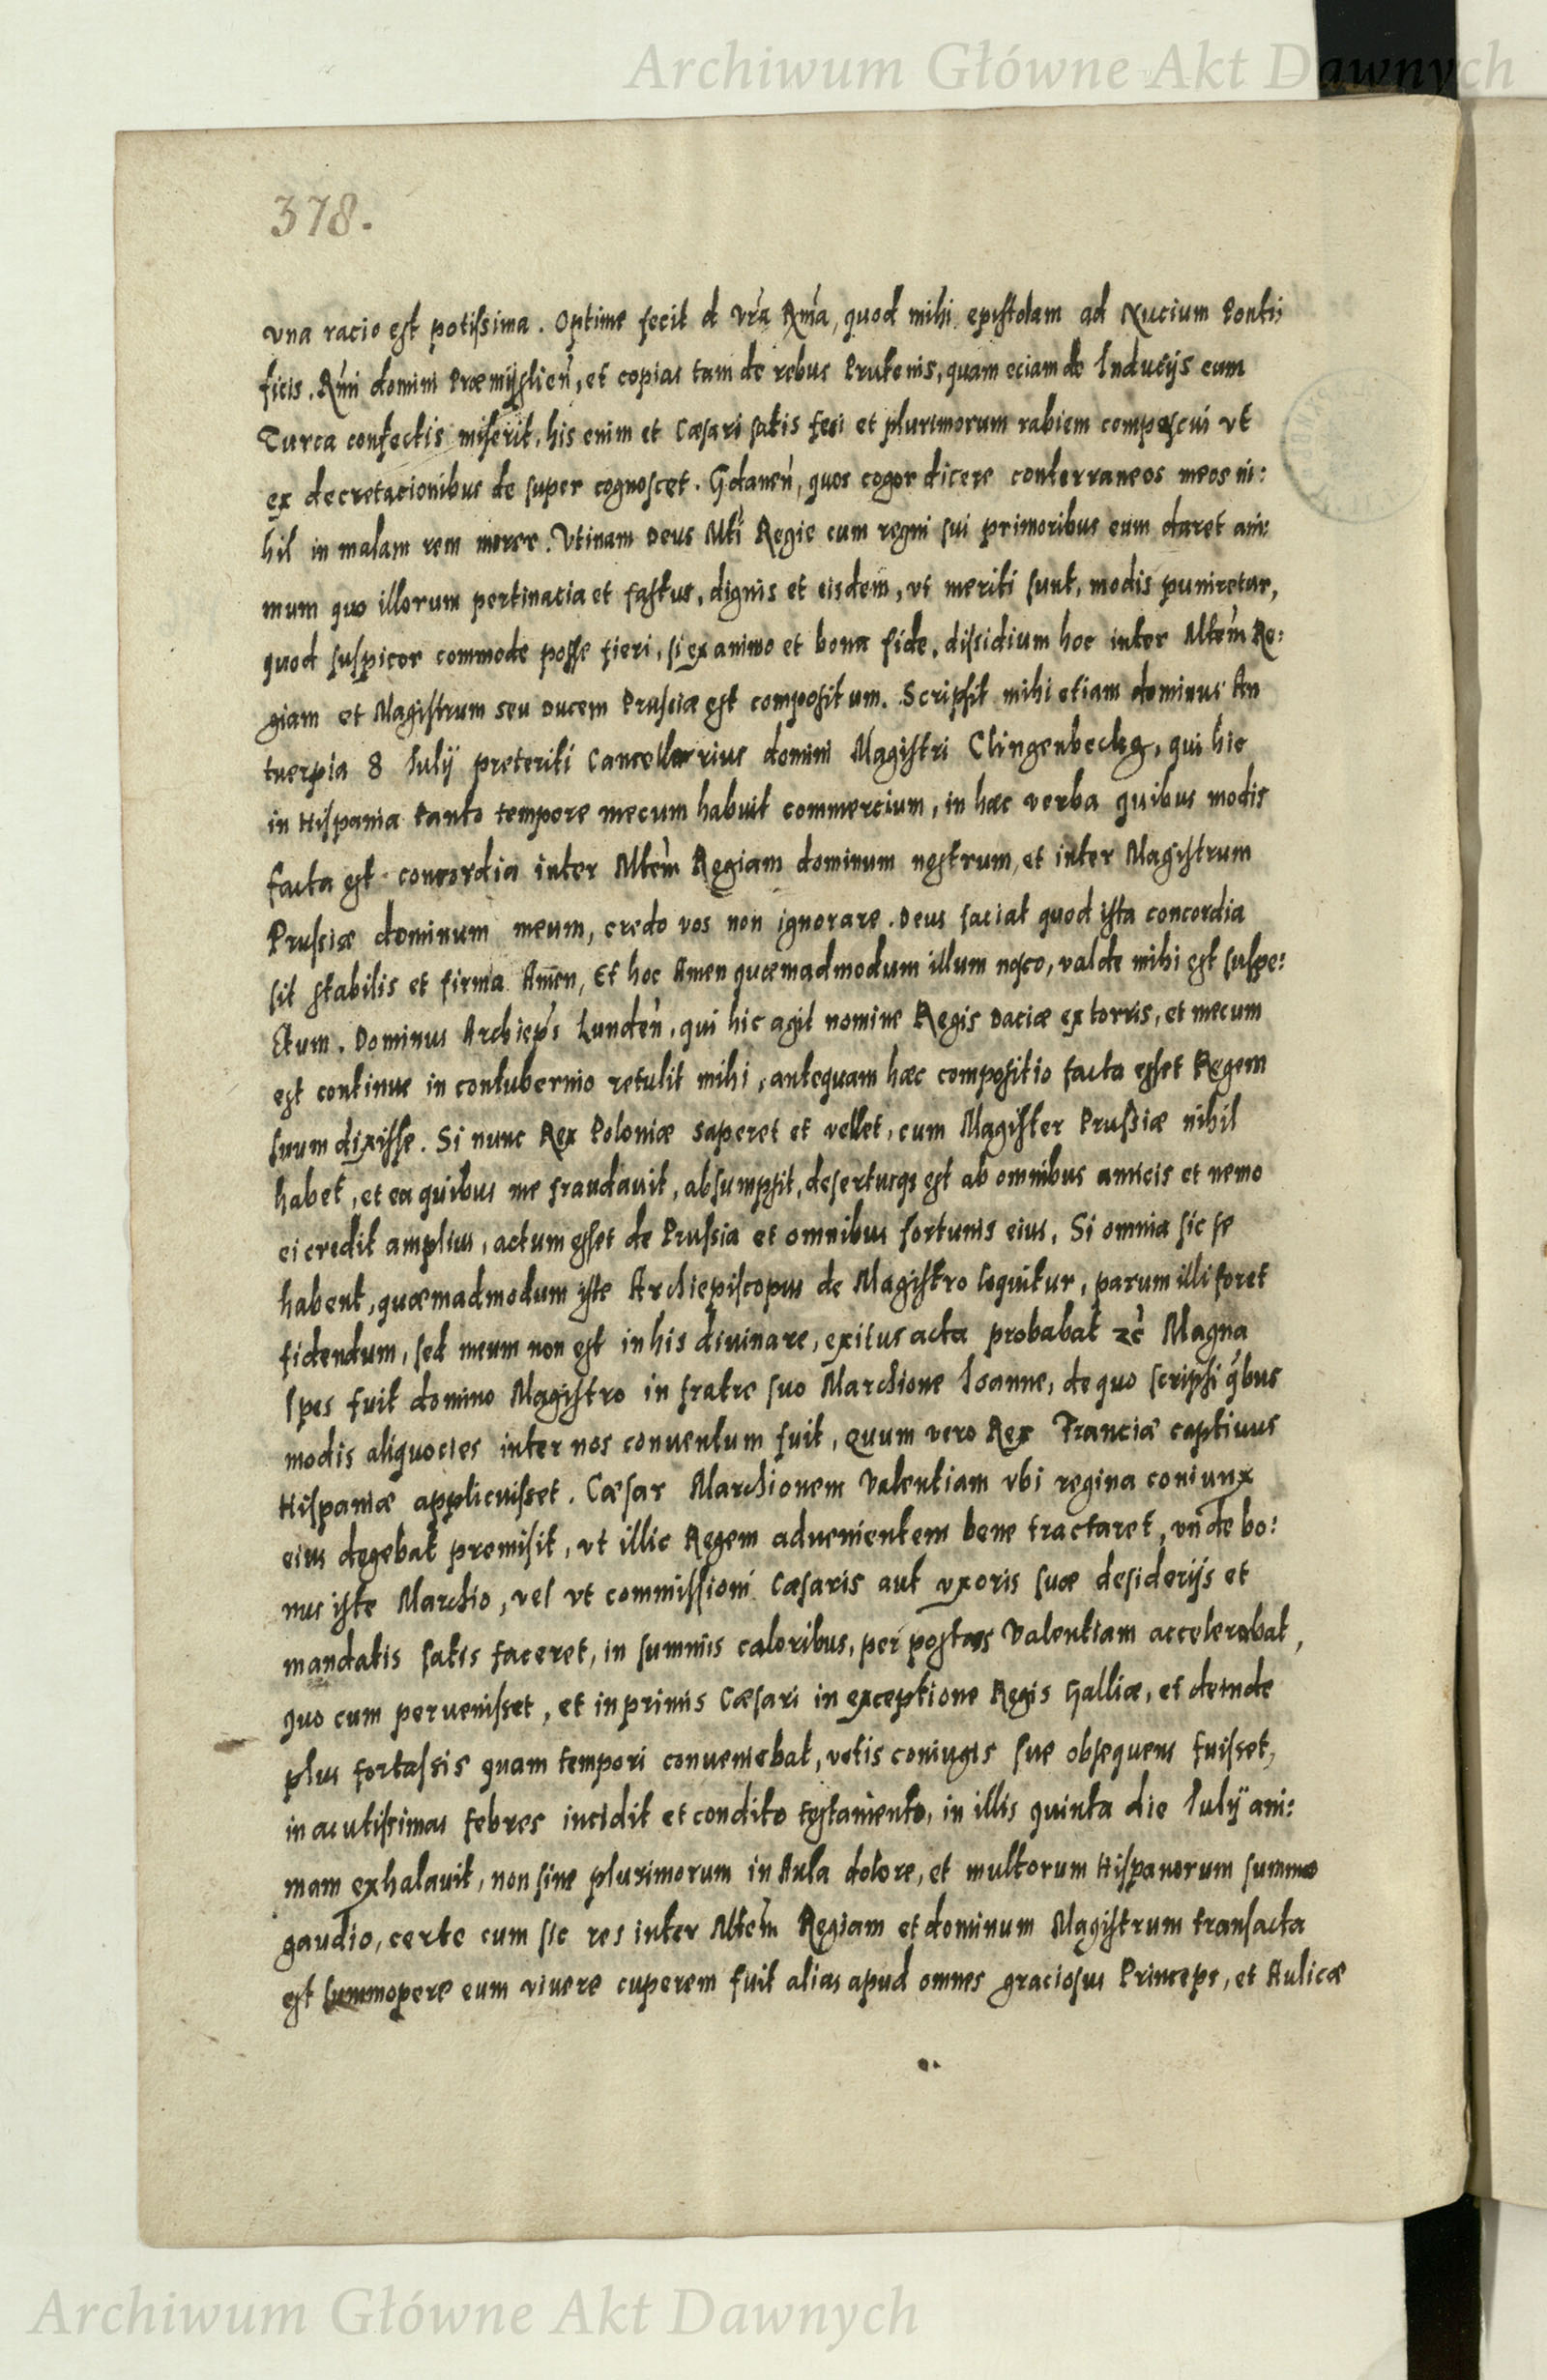 Archiwum Główne Akt Dawnych
378.
vna racio est potissima. Optime fecit d Vrã Rmã, quod mihi epistolam ad Nucium Ponti:
ficis. Rmi domini Præmijslien, et copias tam de rebus Prutenis, quam eciam de Inducijs cum
Turca confectis miserit, his enim et Cæsari satis feci et plurimorum rabiem compescui vt
ex decretacionibus de super cognoscet. Gdanen, quos cogor dicere conterraneos meos ni:
hil in malam rem morer. Vtinam Deus Mti Regie cum regni sui primoribus eum daret ani:
mum quo illorum pertinacia et fastus, dignis et eisdem, vt meriti sunt, modis puniretur,
quod suspicor commode posse fieri, si ex animo et bona fide, dissidium hoc inter Mtem Re:
giam et Magistrum seu Ducem Prussiæ est compositum. Scripsit mihi etiam dominus An
tuerpia 8 Iulij preteriti Cancellarius domini Magistri Clingenbeckg, qui hic
in Hispania tanto tempore mecum habuit commercium, in hæc verba quibus modis
facta est concordia inter Mtem Regiam dominum nostrum, et inter Magistrum
Prussiæ dominum meum, credo vos non ignorare. Deus faciat quod ista concordia
sit stabilis et firma Amen, Et hoc Amen quæmadmodum illum nosco, valde mihi est suspe:
ctum. Dominus Archieps Lunden, qui hic agit nomine Regis Daciæ extorris, et mecum
est continue in contubernio retulit mihi, antequam hæc compositio facta esset Regem
suum dixisse. Si nunc Rex Poloniæ saperet et vellet, cum Magister Prussiæ nihil
habet, et ea quibus me fraudauit, absumpsit, desertusqs est ab omnibus amicis et nemo
ei credit amplius, actum esset de Prussia et omnibus fortunis eius, Si omnia sic se
habent, quæmadmodum iste Archiepiscopus de Magistro loquitur, parum illi foret
fidendum, sed meum non est in his diuinare, exitus acta probabat zc Magna
spes fuit domino Magistro in fratre suo Marchione Ioanne, de quo scripsi qbus
modis aliquocies inter nos conuentum fuit, quum vero Rex Franciæ captiuus
Hispaniæ applicuisset. Cæsar Marchionem Valentiam vbi regina coniunx
eius degebat premisit, vt illic Regem aduenientem bene tractaret, vnde bo:
nus iste Marchio, vel vt commissioni Cæsaris aut vxoris suæ desiderijs et
mandatis satis faceret, in summis caloribus, per postas Valentiam accelerabat,
quo cum peruenisset, et in primis Cæsari in exceptione Regis Galliæ, et deinde
plus fortassis quam tempori conueniebat, votis coniugis sue obsequens fuisset,
in acutissimas febres incidit et condito testamento, in illis quinta die Iulij ani:
mam exhalauit, non sine plurimorum in Aula dolore, et multorum Hispanorum summo
gaudio, certe cum sic res inter Mtem Regiam et dominum Magistrum transacta
est summopere eum viuere cuperem fuit alias apud omnes graciosus Princeps, et Aulicæ
Archiwum Główne Akt Dawnych